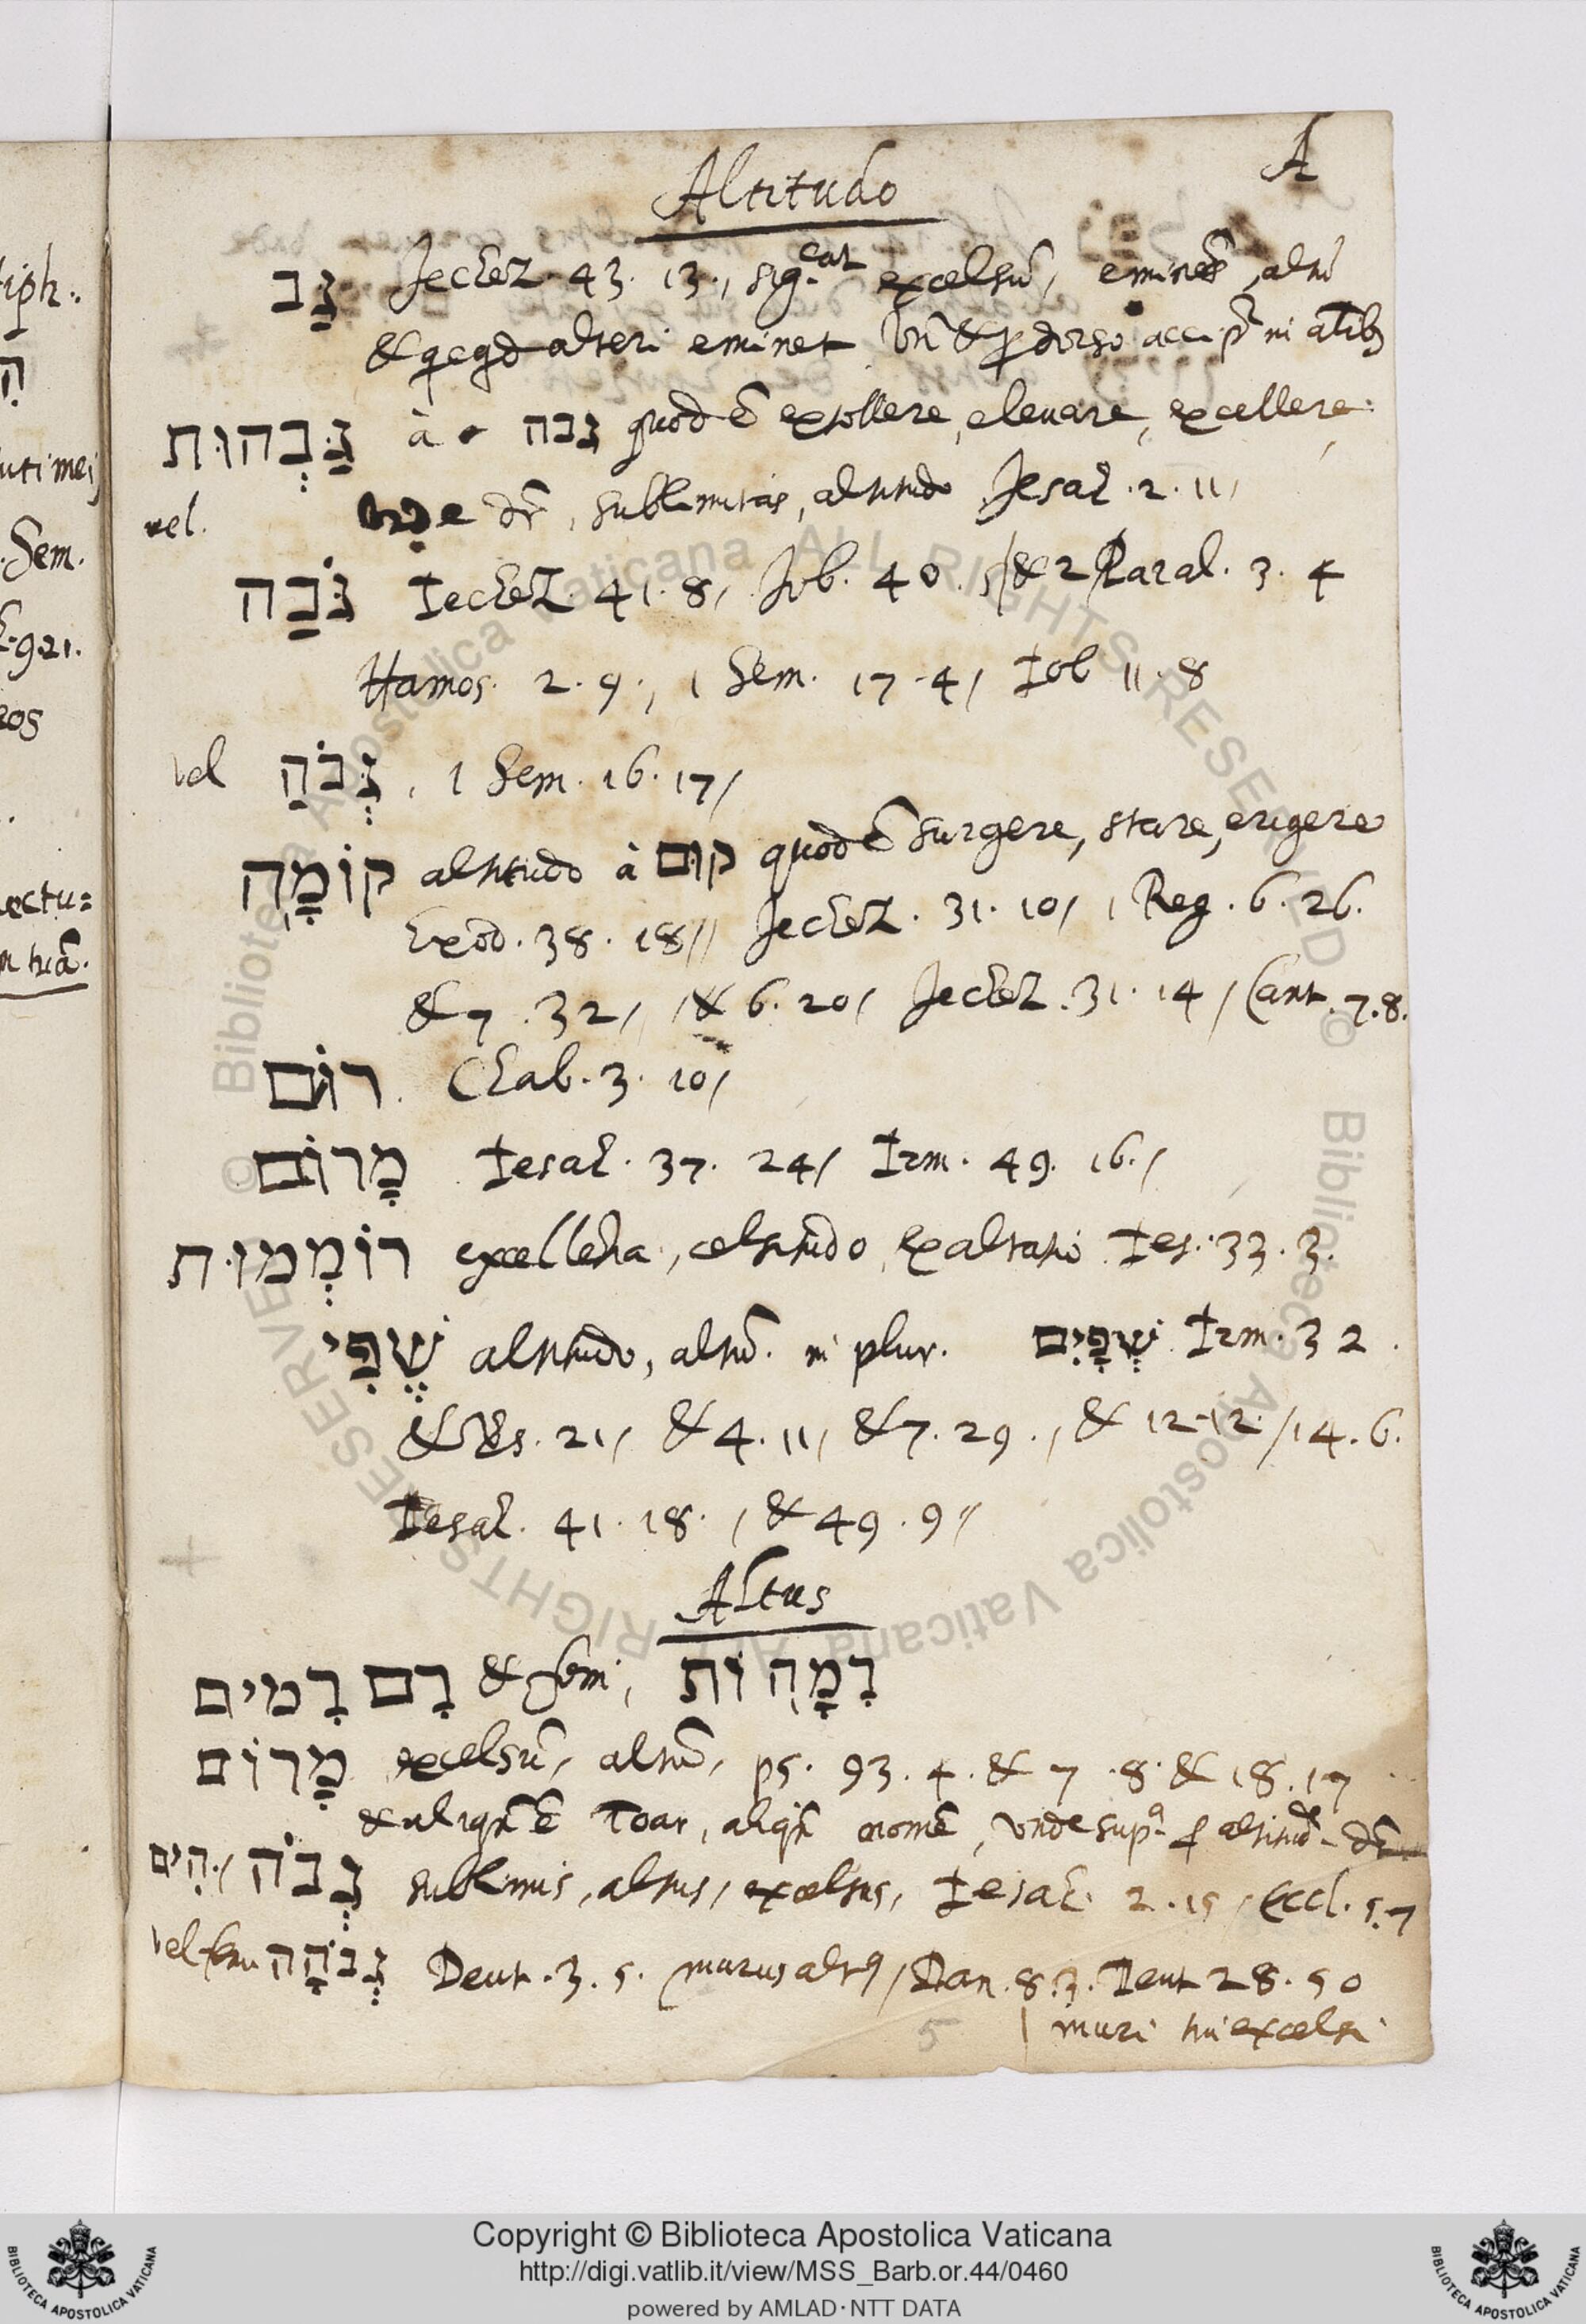 A
Altitudo
גַּב Jechez. 43. 13., sig.cat excelsũ, eminẽs, altũ
& alteri eminet Vñ & dorso accipr̃ in
גַּבְהוּת à גבה quod ẽ extollere, eleuare, excellere.
vel. dr̃, sublimitas, altitudo Jesah. 2. 11,
גֹּבַהּ Iechez. 41. 8, Job. 40. 5, & 2 Paral. 3. 4
Hamos. 2. 9., 1 Sem. 17. 4, Iob 11. 8
vel גְּבֹהַּ, 1 Sem. 16. 17,
קוֹמָה altitudo à קום quod ẽ surgere, stare, erigere
Exod. 38. 18,, Jechez. 31. 10, 1 Reg. 6. 26.
& 7. 32, & 6. 20, Jechez. 31. 14, Cant. 7. 8.
רוֹם. Chab. 3. 10,
מָרוֹם Iesah. 37. 24, Irm. 49. 16.,
רוֹמְמוּת excellẽtia, celsitudo, exaltatio Ies. 33. 3.
שֳׁפִּי altitudo, altũ. in plur. שְׁפָיִם Irm. 3 2.
& 21, & 4. 11, & 7. 29., & 12. 12., 14. 6.
Iesah. 41. 18., & 49. 9,,
Altus
רָם רָמִים & fẽm, רָמָה וֹת
מָרוֹם excelsũ, altũ, ps. 93. 4. & 7. 8. & 18. 17
& aliqñ ẽ Toar, aliqñ nomẽ, vnde
גְּבֹהַּ, הִים. sublimis, altus, excelsus, Iesah. 2. 15, Eccl. 5. 7
vel fẽm גְּבֹהָה Deut. 3. 5. murus altꝰ, Dan. 8. 3. Deut 28. 50
muri tui excelsi
5
tiph.
uti mei
Sem.
9. 21.
ros
ectu=
m tuã.
© Biblioteca Apostolica Vaticana ALL RIGHTS RESERVED © Biblioteca Apostolica Vaticana ALL RIGHTS RESERVED
Copyright © Biblioteca Apostolica Vaticana
http://digi.vatlib.it/view/MSS_Barb.or.44/0460
powered by AMLAD·NTT DATA
BIBLIOTECA APOSTOLICA VATICANA
BIBLIOTECA APOSTOLICA VATICANA